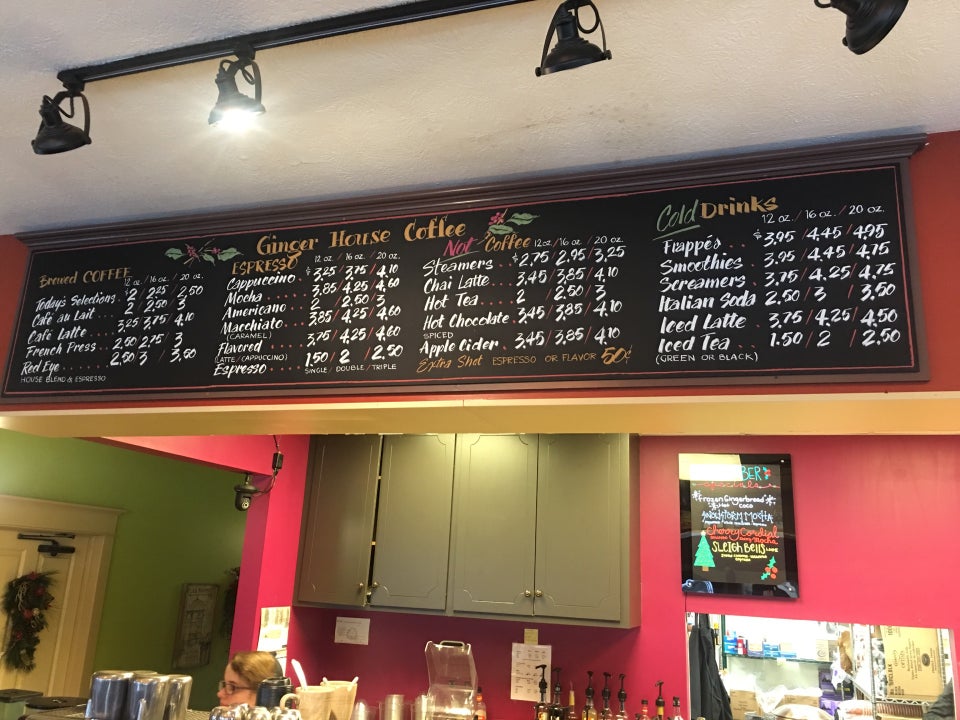 Ginger House Coffee
Brewed COFFEE
12 oz. / 16 oz. / 20 oz.
Today's Selections . $2 / 2.25 / 2.50
Café au Lait . . . 2 / 2.50 / 3
Café Latte . . . 3.25 / 3.75 / 4.10
French Press . . 2.50 / 2.75 / 3
Red Eye . . . . . 2.50 / 3 / 3.50
HOUSE BLEND & ESPRESSO
ESPRESSO
12 oz. / 16 oz. / 20 oz.
Cappuccino . . $3.25 / 3.75 / 4.10
Mocha . . . . . 3.85 / 4.25 / 4.60
Americano . . . 2 / 2.50 / 3
Macchiato . . . 3.85 / 4.25 / 4.60
(CARAMEL)
Flavored . . . 3.75 / 4.25 / 4.60
(LATTE / CAPPUCCINO)
Espresso . . . 1.50 / 2 / 2.50
SINGLE / DOUBLE / TRIPLE
Not Coffee
12 oz / 16 oz / 20 oz.
Steamers . . . . $2.75 / 2.95 / 3.25
Chai Latte . . . 3.45 / 3.85 / 4.10
Hot Tea . . . . 2 / 2.50 / 3
Hot Chocolate . 3.45 / 3.85 / 4.10
SPICED
Apple Cider . . 3.45 / 3.85 / 4.10
Extra Shot ESPRESSO OR FLAVOR 50¢
Cold Drinks
12 oz. / 16 oz. / 20 oz.
Frappés . . . $3.95 / 4.45 / 4.95
Smoothies . . $3.95 / 4.45 / 4.75
Screamers . . 3.75 / 4.25 / 4.75
Italian Soda 2.50 / 3 / 3.50
Iced Latte . . 3.75 / 4.25 / 4.50
Iced Tea . . . 1.50 / 2 / 2.50
(GREEN OR BLACK)
BER
Specials
"Frozen Gingerbread"
Hot COCO
SNOWSTORM MOCHA
Cherry Cordial
Mocha
SLEIGH BELLS